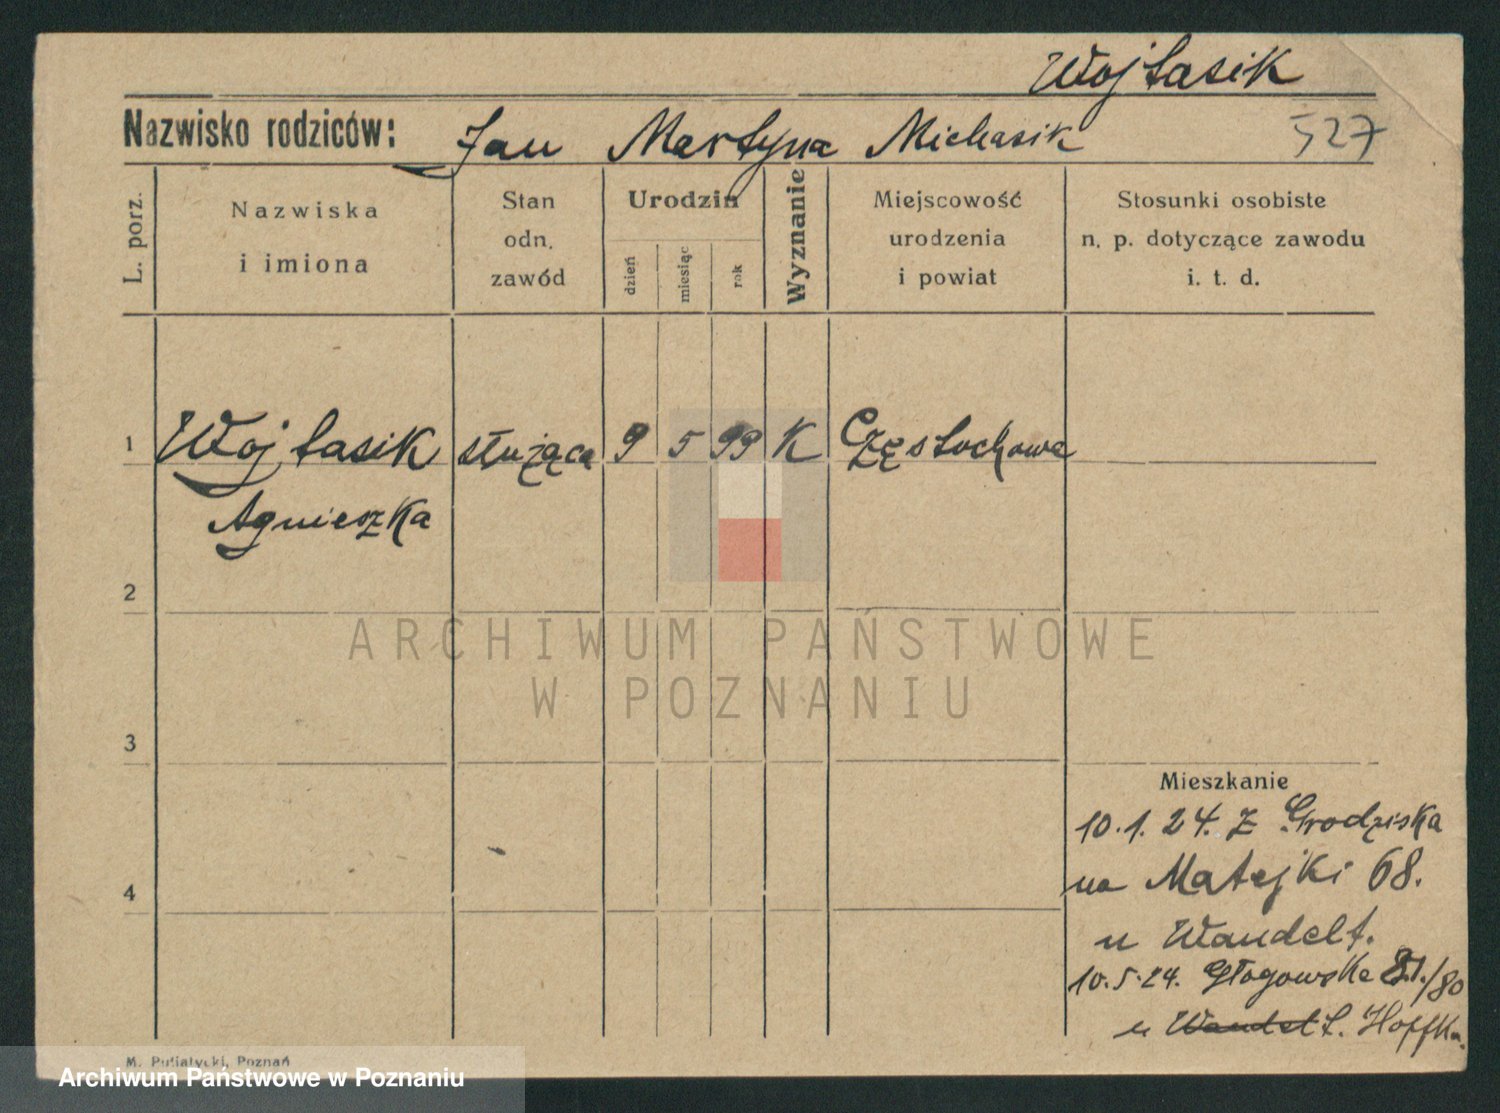 Wojtasik
Nazwisko rodziców: Jan Martyna Michasik 527
L. porz.
Nazwiska
i imiona
Stan
odn.
zawód
Urodzin
dzień
miesiąc
rok
Wyznanie
Miejscowość
urodzenia
i powiat
Stosunki osobiste
n. p. dotyczące zawodu
i. t. d.
1 Wojtasik służąca 9 5 99 K Częstochowa
Agnieszka
2
ARCHIWUM PAŃSTWOWE
W POZNANIU
3
Mieszkanie
10.1.24. z Grodziska
na Matejki 68.
4
u Wandelt.
10.5.24. Głogowska 81./80
u Wandelt. Hoffka.
M. Putiatycki, Poznań
Archiwum Państwowe w Poznaniu